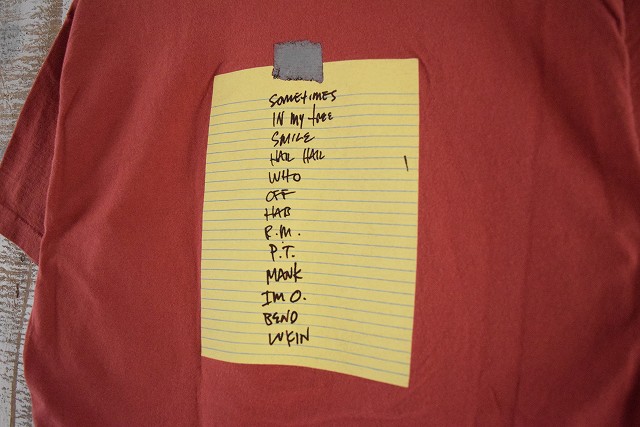 SOMETIMES
IN my tree
SMILE
HAIL HAIL
WHO
OFF
HAB
R.M.
P.T.
MANK
IM O.
BEND
LUKIN